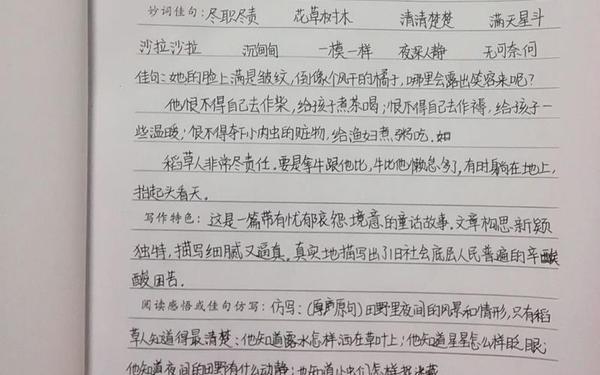 妙词佳句：尽职尽责 花草树木 清清楚楚 满天星斗
沙拉沙拉 沉甸甸 一模一样 夜深人静 无可奈何
佳句：她的脸上满是皱纹，倒像个风干的橘子，哪里会露出笑容来呢？
他恨不得自己去作柴，给孩子煮茶喝；恨不得自己去作褥，给孩子一
些温暖；恨不得夺下小肉虫的赃物，给渔妇煮粥吃。如
稻草人非常尽责任。要是拿牛跟他比，牛比他懒怠多了，有时躺在地上，
抬起头看天。
写作特色：这是一篇带有忧郁哀怨境意的童话故事。文章构思新颖
独特，描写细腻又逼真。真实地描写出了旧社会底层人民普遍的辛酸
酸困苦。
阅读感悟或佳句仿写：仿写：(原声原句)田野里夜间的风景和情形，只有稻
草人知道得最清楚：他知道露水怎样洒在草叶上；他知道星星怎么样眨眼；
他知道夜间的田野有什么动静；也知道小虫们怎样捉迷藏